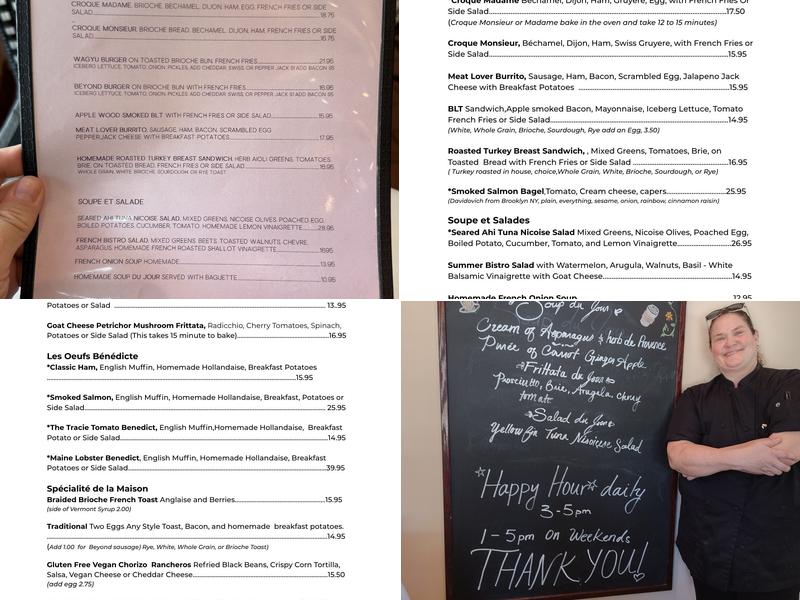 CROQUE MADAME, BRIOCHE, BECHAMEL, DIJON, HAM, EGG, FRENCH FRIES OR SIDE
SALAD 18.75
CROQUE MONSIEUR, BRIOCHE BREAD, BECHAMEL, DIJON, HAM, FRENCH FRIES OR SIDE
SALAD 16.75
WAGYU BURGER ON TOASTED BRIOCHE BUN, FRENCH FRIES 21.95
ICEBERG LETTUCE, TOMATO, ONION, PICKLES, ADD CHEDDAR, SWISS, OR PEPPER JACK $1 ADD BACON $5
BEYOND BURGER ON BRIOCHE BUN WITH FRENCH FRIES 16.95
ICEBERG LETTUCE, TOMATO, ONION, PICKLES, ADD CHEDDAR, SWISS, OR PEPPER JACK $1 ADD BACON $5
APPLE WOOD SMOKED BLT WITH FRENCH FRIES OR SIDE SALAD 15.95
MEAT LOVER BURRITO, SAUSAGE, HAM, BACON, SCRAMBLED EGG
PEPPERJACK CHEESE WITH BREAKFAST POTATOES 17.95
HOMEMADE ROASTED TURKEY BREAST SANDWICH, HERB AIOLI GREENS, TOMATOES,
BRIE, ON TOASTED BREAD, FRENCH FRIES OR SIDE SALAD 16.95
WHOLE GRAIN, WHITE, BRIOCHE, SOURDOUGH OR RYE TOAST
SOUPE ET SALADE
SEARED AHI TUNA NICOISE SALAD, MIXED GREENS, NICOISE OLIVES, POACHED EGG,
BOILED POTATOES, CUCUMBER, TOMATO, HOMEMADE LEMON VINAIGRETTE 28.95
FRENCH BISTRO SALAD, MIXED GREENS, BEETS, TOASTED WALNUTS, CHEVRE,
ASPARAGUS, HOMEMADE FRENCH ROASTED SHALLOT VINAIGRETTE 16.95
FRENCH ONION SOUP HOMEMADE 13.95
HOMEMADE SOUP DU JOUR SERVED WITH BAGUETTE 10.95
*Croque Madame, Béchamel, Dijon, Ham, Gruyere, Egg, with French Fries Or
Side Salad 17.50
(Croque Monsieur or Madame bake in the oven and take 12 to 15 minutes)
Croque Monsieur, Béchamel, Dijon, Ham, Swiss Gruyere, with French Fries or
Side Salad 15.95
Meat Lover Burrito, Sausage, Ham, Bacon, Scrambled Egg, Jalapeno Jack
Cheese with Breakfast Potatoes 15.95
BLT Sandwich,Apple smoked Bacon, Mayonnaise, Iceberg Lettuce, Tomato
French Fries or Side Salad 14.95
(White, Whole Grain, Brioche, Sourdough, Rye add an Egg, 3.50)
Roasted Turkey Breast Sandwich, , Mixed Greens, Tomatoes, Brie, on
Toasted Bread with French Fries or Side Salad 16.95
( Turkey roasted in house, choice,Whole Grain, White, Brioche, Sourdough, or Rye)
*Smoked Salmon Bagel,Tomato, Cream cheese, capers 25.95
(Davidovich from Brooklyn NY, plain, everything, sesame, onion, rainbow, cinnamon raisin)
Soupe et Salades
*Seared Ahi Tuna Nicoise Salad Mixed Greens, Nicoise Olives, Poached Egg,
Boiled Potato, Cucumber, Tomato, and Lemon Vinaigrette 26.95
Summer Bistro Salad with Watermelon, Arugula, Walnuts, Basil - White
Balsamic Vinaigrette with Goat Cheese 14.95
Homemade French Onion Soup 12.95
Potatoes or Salad 13..95
Goat Cheese Petrichor Mushroom Frittata, Radicchio, Cherry Tomatoes, Spinach,
Potatoes or Side Salad (This takes 15 minute to bake) 16.95
Les Oeufs Bénédicte
*Classic Ham, English Muffin, Homemade Hollandaise, Breakfast Potatoes
15.95
*Smoked Salmon, English Muffin, Homemade Hollandaise, Breakfast, Potatoes or
Side Salad 25.95
*The Tracie Tomato Benedict, English Muffin,Homemade Hollandaise, Breakfast
Potato or Side Salad 14.95
*Maine Lobster Benedict, English Muffin, Homemade Hollandaise, Breakfast
Potatoes or Side Salad 39.95
Spécialité de la Maison
Braided Brioche French Toast Anglaise and Berries 15.95
(side of Vermont Syrup 2.00)
Traditional Two Eggs Any Style Toast, Bacon, and homemade breakfast potatoes.
14.95
(Add 1.00 for Beyond sausage) Rye, White, Whole Grain, or Brioche Toast)
Gluten Free Vegan Chorizo Rancheros Refried Black Beans, Crispy Corn Tortilla,
Salsa, Vegan Cheese or Cheddar Cheese 15.50
(add egg 2.75)
Soup du Jour
Cream of Asparagus & herb de Provence
Purée of Carrot Ginger Apple
Frittata du Jour
Prosciutto, Brie, Arugula, cherry
tomato
Salad du Jour
Yellowfin Tuna Nicoise Salad
Happy Hour daily
3-5pm
1-5pm on Weekends
THANK YOU!